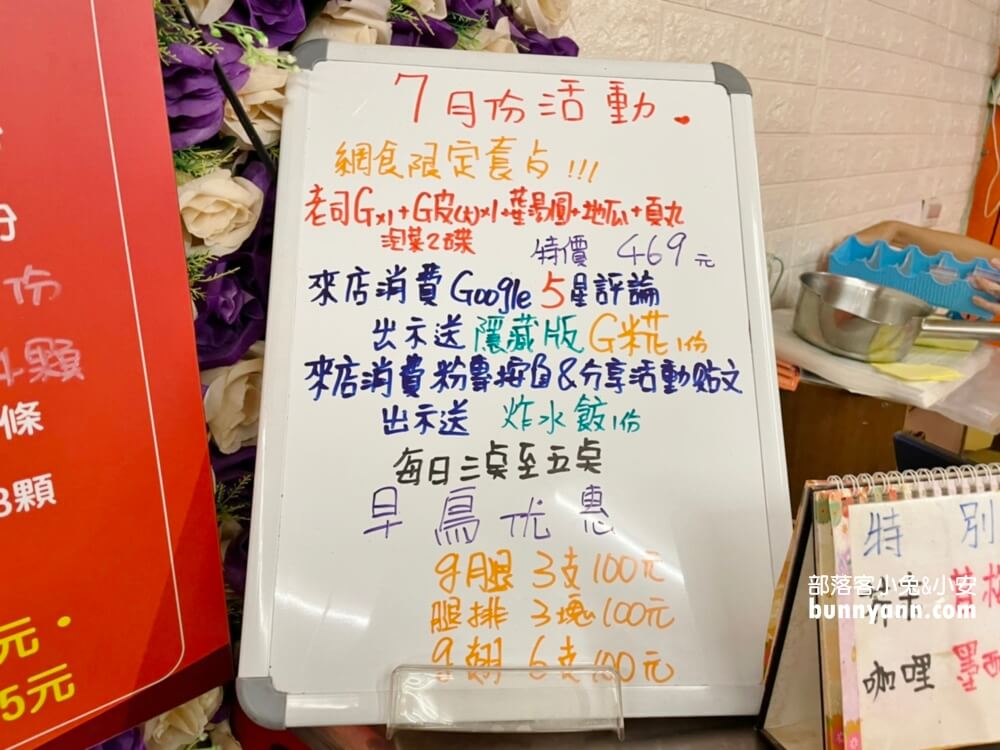 7月份活動.
網食限定套点!!!
老司Gx1+G皮(大)x1+葉湯圓+地瓜+貢丸
泡菜2碟
特價 469元
來店消費 Google 5星評論
出示送 隱藏版 G米花1份
來店消費粉專按自&分享活動貼文
出示送 炸水餃1份
每日三桌至五桌
早鳥优惠
g腿 3支100元
腿排 3塊100元
g翅 6支100元
份
份
顆
條
8顆
元.
5元
特別
咖哩
部落客小兔&小安
bunnyann.com